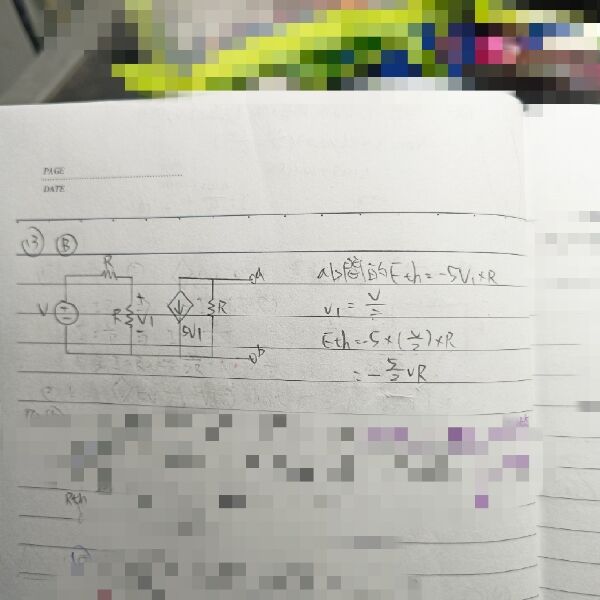 PAGE
DATE
13 B
R
a
V
R
+
V1
-
5V1
R
b
ab間的Eth=-5V1×R
V1=V/2
Eth=-5×(V/2)×R
=-5/2VR
Rth